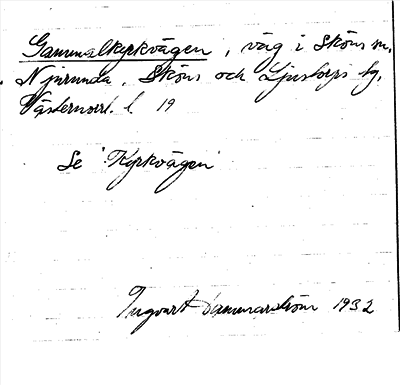 Gammalkyrkvägen, väg i Sköns sn,
Njurunda, Sköns och Ljustorps tg,
Västernorrl. l 19
Se "Kyrkvägen"
Ingvart Hammarström 1932